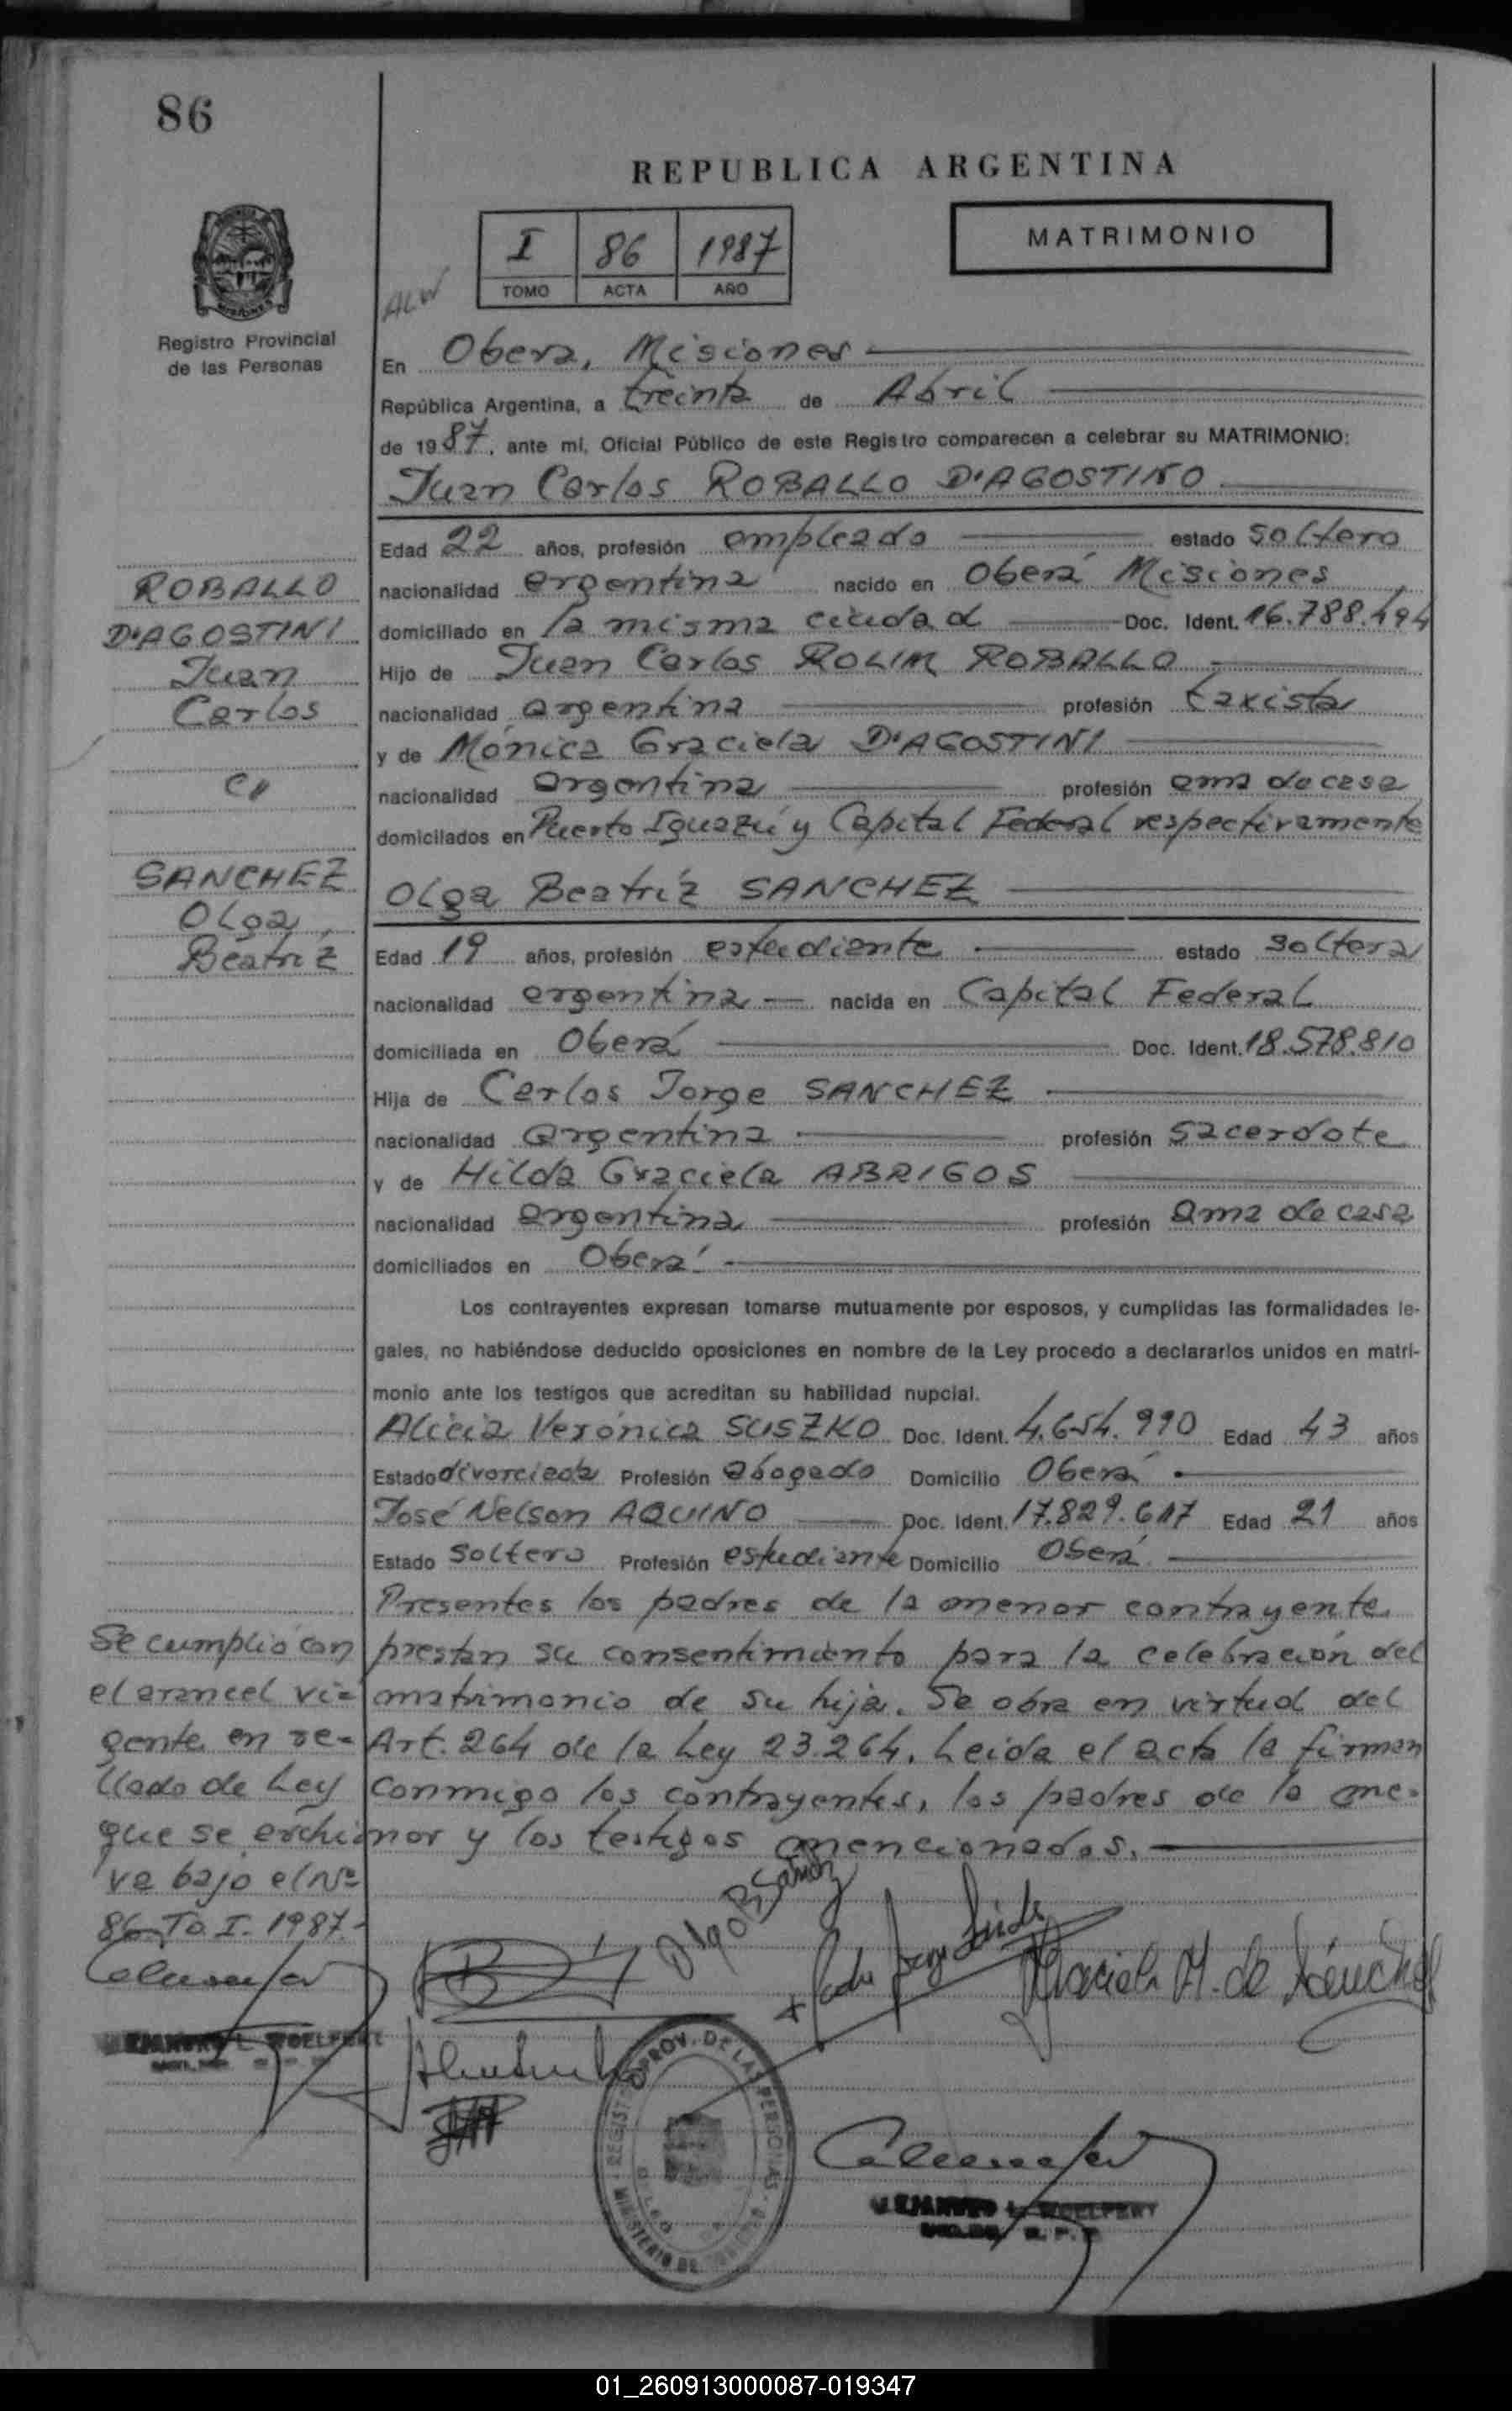 86
REPUBLICA ARGENTINA
I 86 1987
TOMO ACTA AÑO
MATRIMONIO
ALW
Registro Provincial
de las Personas
En Obera, Misiones
República Argentina, a treinta de Abril
de 1987, ante mi, Oficial Público de este Registro comparecen a celebrar su MATRIMONIO:
Juan Carlos ROBALLO D'AGOSTINO
Edad 22 años, profesión empleado estado soltero
ROBALLO
D'AGOSTINI
Juan
Carlos
nacionalidad argentina nacido en Oberá Misiones
domiciliado en la misma ciudad Doc. Ident. 16.788.494
Hijo de Juan Carlos ROLIM ROBALLO
nacionalidad argentina profesión taxista
y de Mónica Graciela D'AGOSTINI
nacionalidad argentina profesión ama de casa
domicilados en Puerto Iguazú y Capital Federal respectivamente
SANCHEZ
Olga
Beatríz
Olga Beatríz SANCHEZ
Edad 19 años, profesión estudiante estado soltera
nacionalidad argentina nacida en Capital Federal
domiciliada en Oberá Doc. Ident. 18.578.810
Hija de Carlos Jorge SANCHEZ
nacionalidad argentina profesión sacerdote
y de Hilda Graciela ABRIGOS
nacionalidad argentina profesión ama de casa
domiciliados en Oberá
Los contrayentes expresan tomarse mutuamente por esposos, y cumplidas las formalidades le-
gales, no habiéndose deducido oposiciones en nombre de la Ley procedo a declararlos unidos en matri-
monio ante los testigos que acreditan su habilidad nupcial.
Alicia Verónica SUSZKO Doc. Ident. 4.654.990 Edad 43 años
Estado divorciada Profesión abogado Domicilio Oberá
José Nelson AQUINO Doc. Ident. 17.829.617 Edad 21 años
Estado soltero Profesión estudiante Domicilio Oberá
Presentes los padres de la menor contrayente
prestan su consentimiento para la celebración del
matrimonio de su hija. Se obra en virtud del
Art. 264 de la Ley 23.264. Leida el acta la firman
conmigo los contrayentes, los padres de la me-
nor y los testigos mencionados.
Se cumplió con
el arancel vi=
gente en se=
llado de Ley
que se archi
va bajo el Nº
86 To. I. 1987.
Olga B Sanchez
Graciela H. de Sánchez
WOELFERT
REGIST PROV. DE LAS PERSONAS
MINISTERIO DE
WOELFERT
01_260913000087-019347